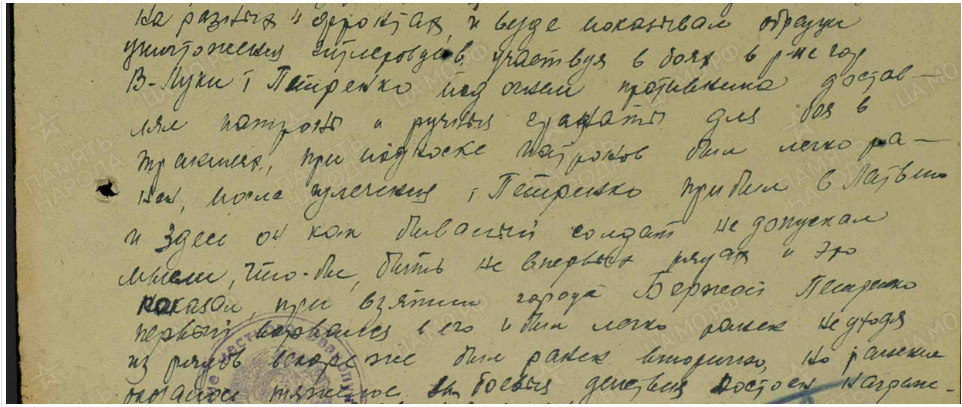 на разных фронтах, и везде показывал образцы
уничтожения гитлеровцев, участвуя в боях в р-не гор
В-Луки т Петренко под огнем противника достав-
лял патроны и ручные гранаты для боя в
траншеях, при подноске патронов был легко ра-
нен, после излечения т Петренко прибыл в Латвию
и здесь он как бывалый солдат не допускал
мысли, что-бы, быть не впервых рядах и это
показал при взятии города Петренко
первый ворвался в его и был легко ранен не уходя
из рядов вскоре же был ранен вторично, но ранение
оказалось тяжелое боевые действия достоен награж-